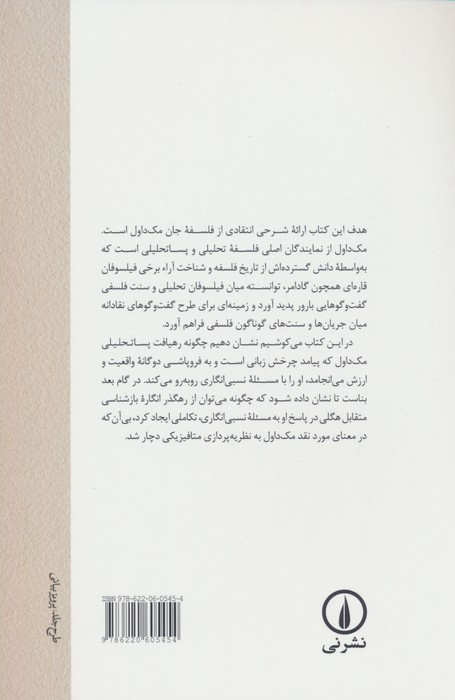 هدف این کتاب ارائهٔ شرحی انتقادی از فلسفهٔ جان مک‌داول است.
مک‌داول از نمایندگان اصلی فلسفهٔ تحلیلی و پساتحلیلی است که
به‌واسطهٔ دانش گسترده‌اش از تاریخ فلسفه و شناخت آراء برخی فیلسوفان
قاره‌ای همچون گادامر، توانسته میان فیلسوفان تحلیلی و سنت فلسفی
گفت‌وگوهایی بارور پدید آورد و زمینه‌ای برای طرح گفت‌وگوهای نقادانه
میان جریان‌ها و سنت‌های گوناگون فلسفی فراهم آورد.
در این کتاب می‌کوشیم نشان دهیم چگونه رهیافت پساتحلیلی
مک‌داول که پیامد چرخش زبانی است و به فروپاشی دوگانهٔ واقعیت و
ارزش می‌انجامد، او را با مسئلهٔ نسبی‌انگاری روبه‌رو می‌کند. در گام بعد
بناست تا نشان داده شود که چگونه می‌توان از رهگذر انگارهٔ بازشناسی
متقابل هگلی در پاسخ او به مسئلهٔ نسبی‌انگاری، تکاملی ایجاد کرد، بی‌آن‌که
در معنای مورد نقد مک‌داول به نظریه‌پردازی متافیزیکی دچار شد.
طرح جلد: پرویز بیانی
ISBN 978-622-06-0545-4
9 786220 605454
نشر نی